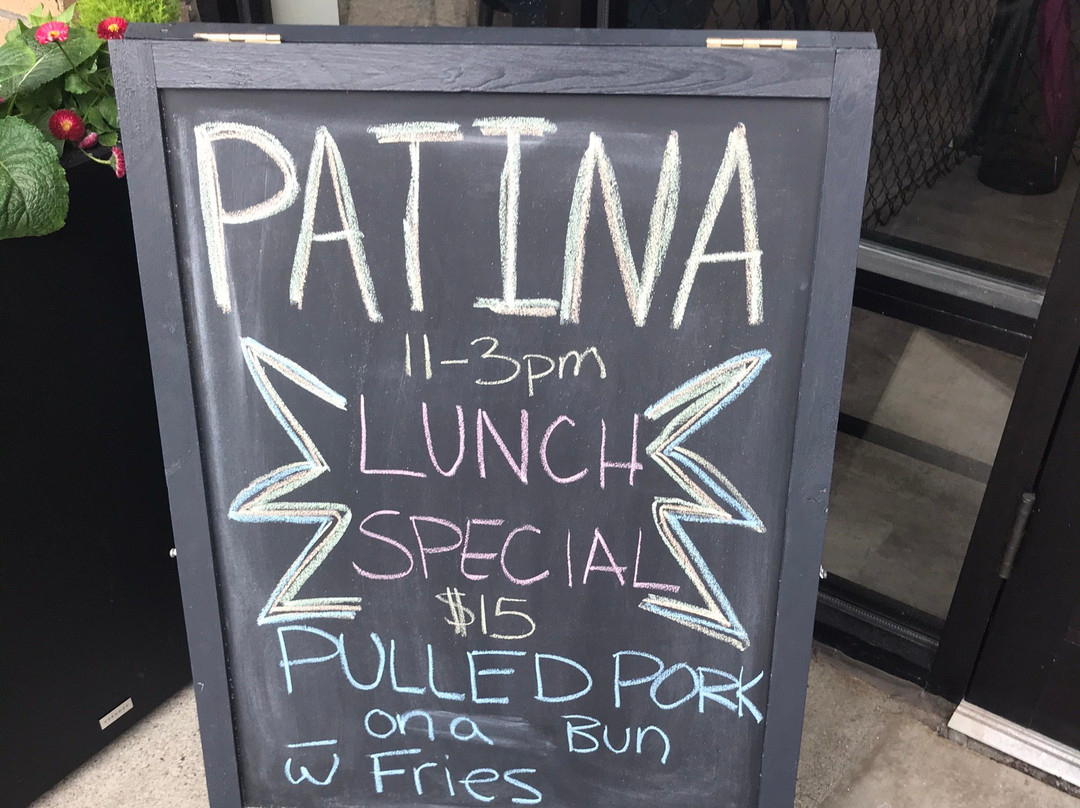 PATINA
11-3pm
LUNCH
SPECIAL
$15
PULLED PORK
on a Bun
w̅ Fries